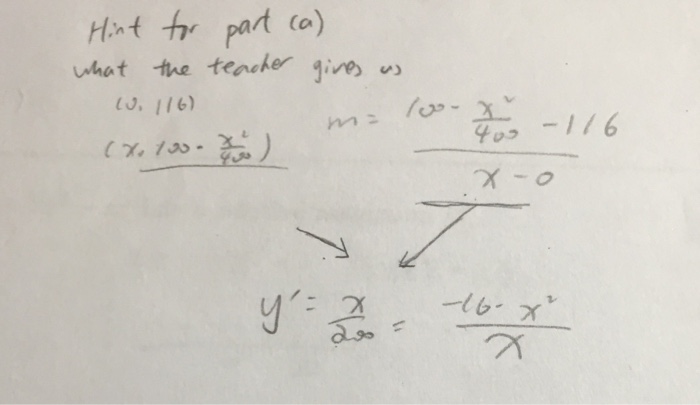 Hint for part (a)
what the teacher gives us
(0, 116)
(x, 100 - x²/400)
m = (100 - x²/400 - 116)/(x - 0)
y' = x/200 = (-16 - x²)/x